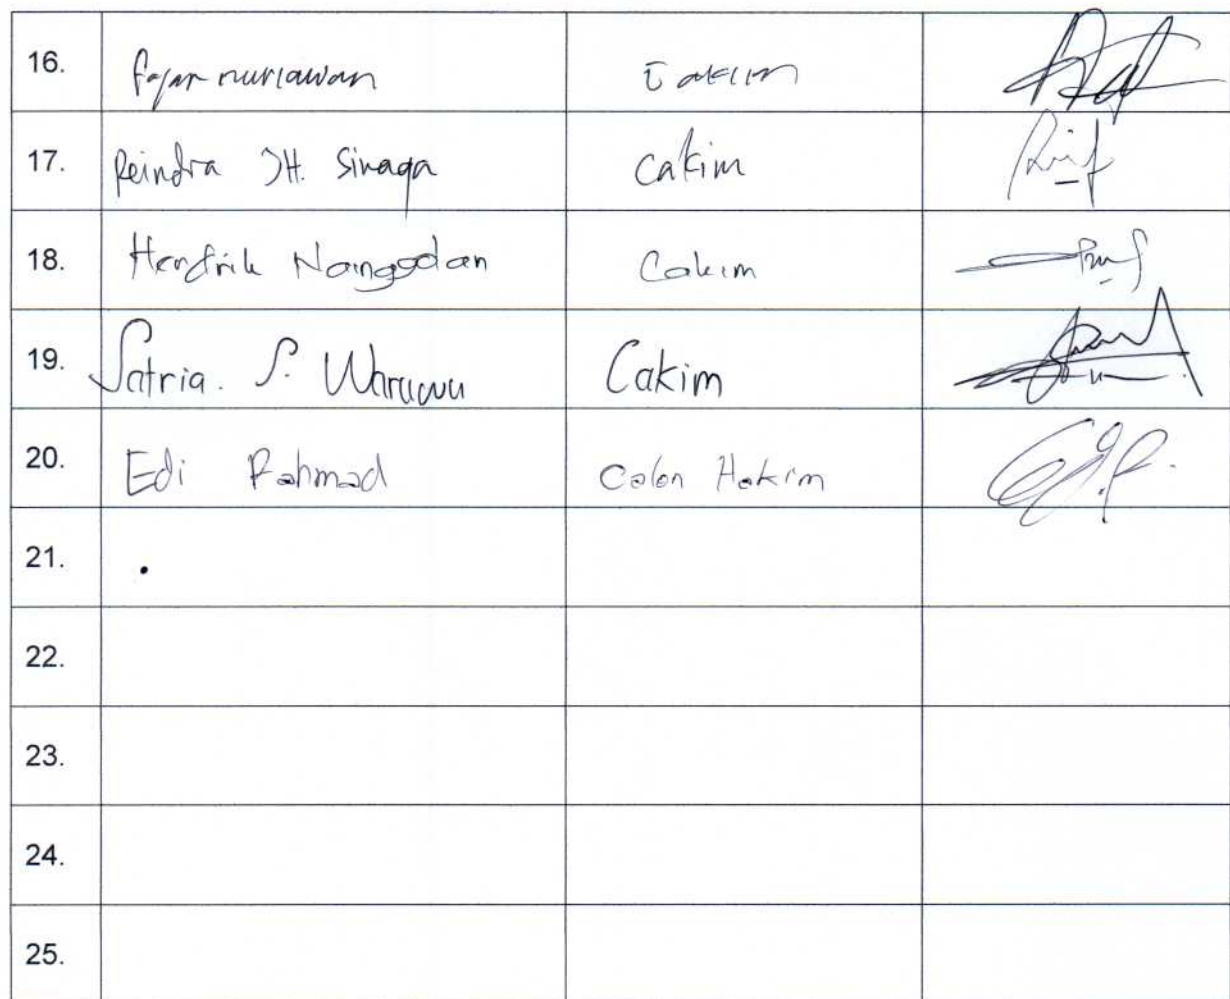 16. Fajar nuriawan Cakim
17. Reindra JH. Sinaga Cakim
18. Hendrik Nainggolan Cakim
19. Satria. S. Waruwu Cakim
20. Edi Rahmad Calon Hakim
21.
22.
23.
24.
25.